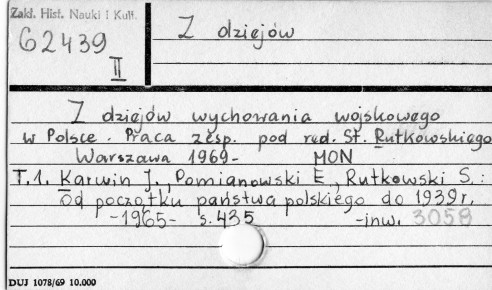 Zakł. Hist. Nauki i Kult.
62439
II
Z dziejów
Z dziejów wychowania wojskowego
w Polsce. Praca zesp. pod red. St. Rutkowskiego
Warszawa 1969- MON
T.1. Karwin J., Pomianowski E., Rutkowski S.:
Od początku państwa polskiego do 1939 r.
-1965- s. 435 -inw. 3058
DUJ 1078/69 10.000